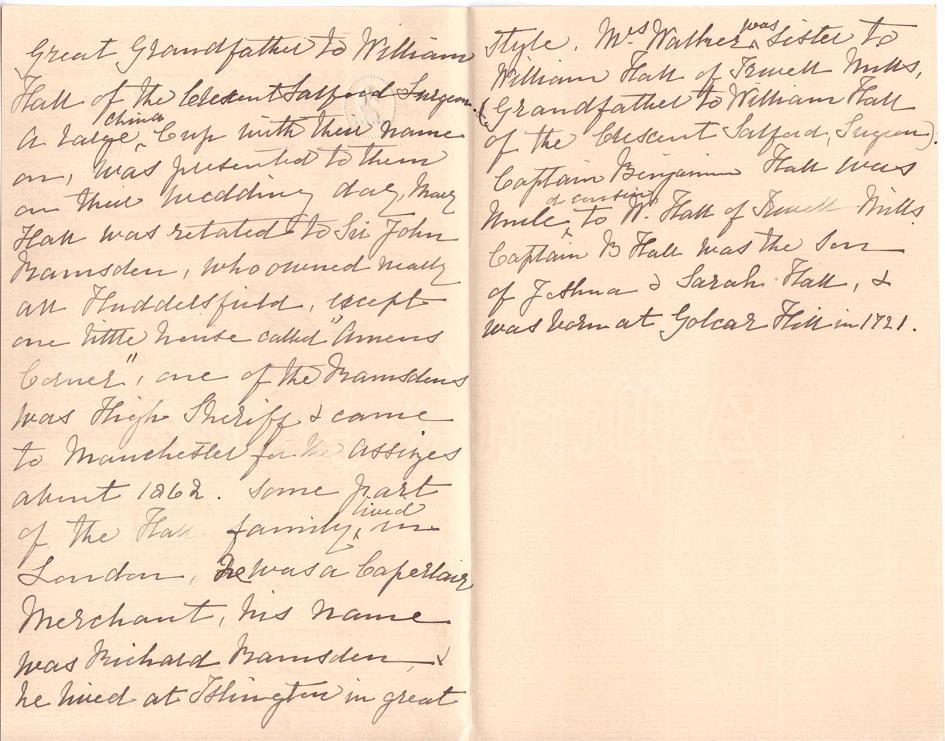 Great Grandfather to William
Hall of the Crescent Salford Surgeon.
A large china Cup with their name
on, was presented to them
on their wedding day, Mary
Hall was related to Sir John
Ramsden, who owned nearly
all Huddersfield, except
one little house called "Amens
Corner", one of the Ramsdens
was High Sheriff & came
to Manchester for the assizes
about 1862. Some part
of the Hall family, lived in
London, he was a
Merchant, his name
was Richard Ramsden, &
he lived at Islington in great
style. Mrs Walker was Sister to
William Hall of Irwell Mills,
Grandfather to William Hall
of the Crescent Salford, Surgeon).
Captain Benjamin Hall was
Uncle or cousin to W. Hall of Irwell Mills
Captain B Hall was the Son
of Joshua & Sarah Hall, &
was born at Golcar Hill in 1721.